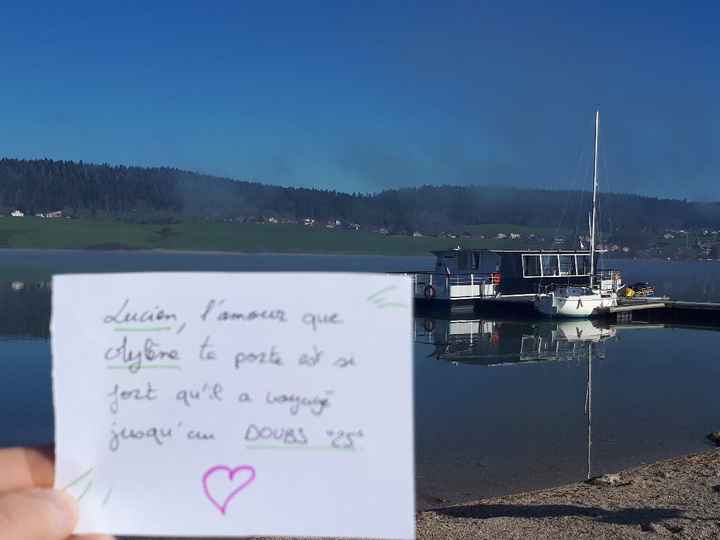 Lucien, l'amour que
Mylène te porte est si
fort qu'il a voyagé
jusqu'au DOUBS "25"